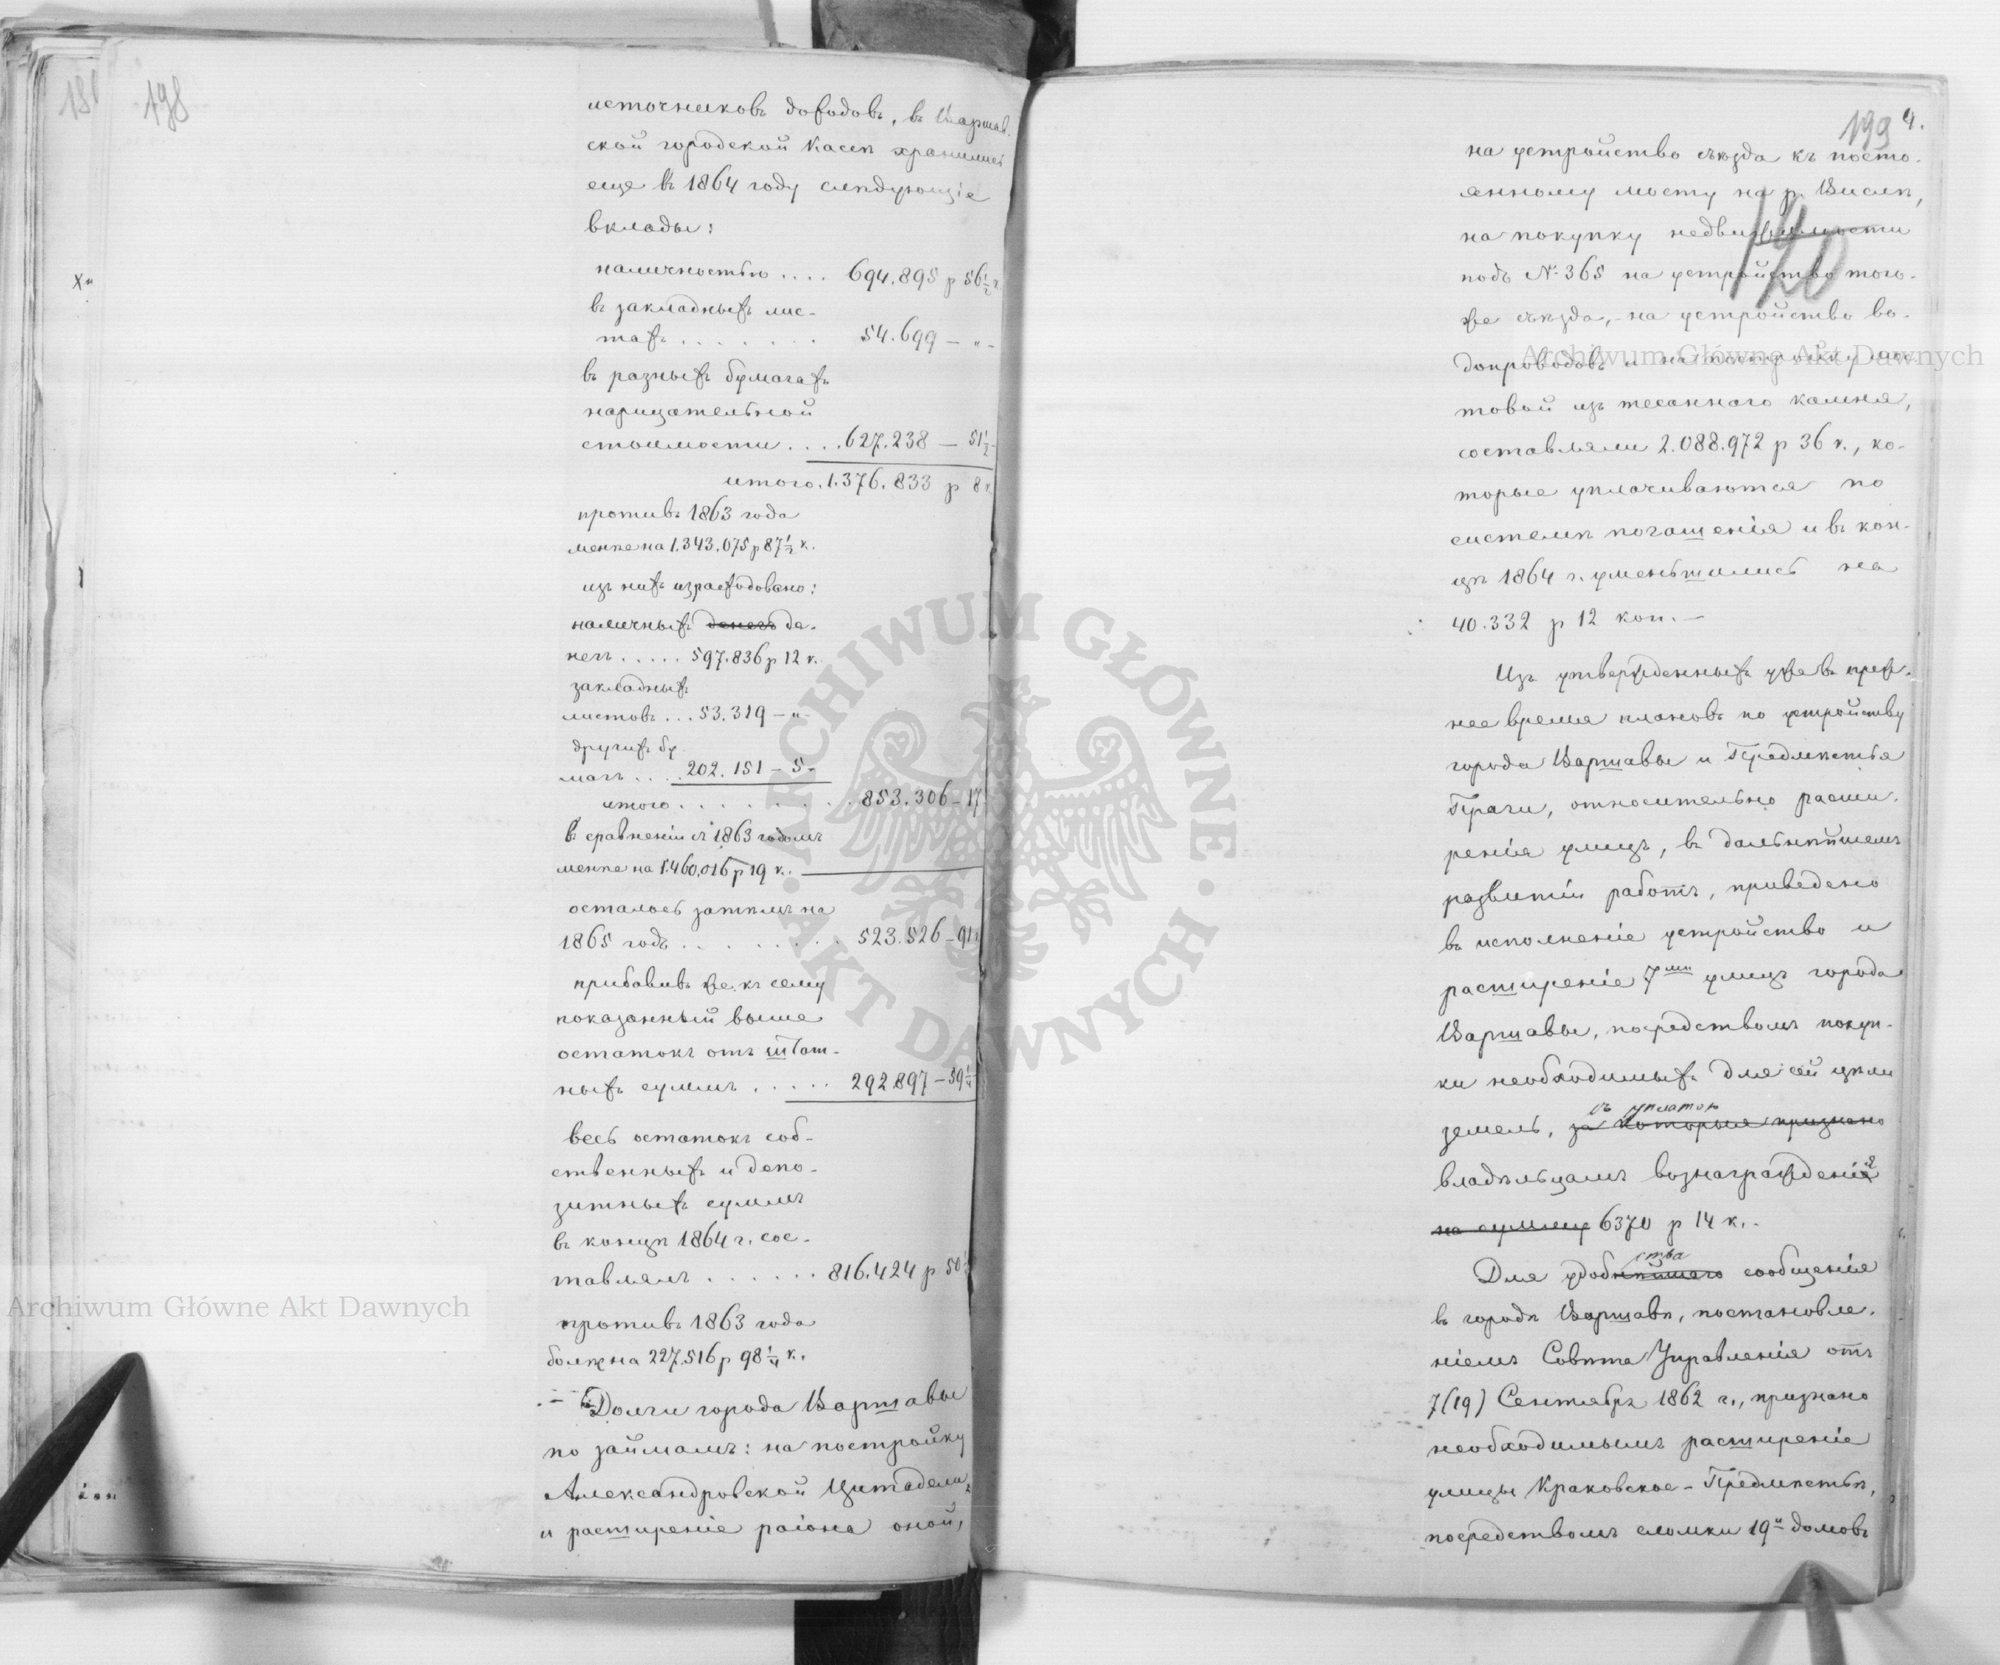 181
198
источниковъ доходовъ, въ Варшав-
ской городской Кассѣ хранились
еще въ 1864 году слѣдующіе
вклады:
наличностью .... 694.895 р 56½ к.
въ закладныхъ лис-
тахъ ....... 54.699 — „ -
въ разныхъ бумагахъ
нарицательной
стоимости .... 627.238 — 51½ -
итого. 1.376.833 р 8 к.
противъ 1863 года
менѣе на 1.343.075 р 87½ к.
изъ нихъ израсходовано:
наличныхъ денегъ де-
негъ ..... 597.836 р 12 к.
закладныхъ
листовъ ... 53.319 — „ -
другихъ бу-
магъ .... 202.151 — 5 -
итого ......... 853.306 — 17
въ сравненіи съ 1863 годомъ
менѣе на 1.460.016 р 19 к.
осталось затѣмъ на
1865 годъ ......... 523.526 — 91
прибавивъ же къ сему
показанный выше
остатокъ отъ штат-
ныхъ суммъ ..... 292.897 — 59¼
весь остатокъ соб-
ственныхъ и депо-
зитныхъ суммъ
въ концѣ 1864 г. сос-
тавлялъ ...... 816.424 р 50
противъ 1863 года
болѣе на 227.516 р 98¼ к.
Долги города Варшавы
по займамъ: на постройку
Александровской Цитадели,
и расширеніе раіона оной,
199
4.
120
на устройство съѣзда къ посто-
янному мосту на р. Вислѣ,
на покупку недвижимости
подъ № 365 на устройство того-
же съѣзда, - на устройство во-
допроводовъ и на постройку мос-
товой изъ тесаннаго камня,
составляли 2.088.972 р 36 к., ко-
торые уплачиваются по
системѣ погашенія и въ кон-
цѣ 1864 г. уменьшились на
40.332 р 12 коп. —
Изъ утвержденныхъ уже въ преж-
нее время плановъ по устройству
города Варшавы и Предмѣстья
Праги, относительно расши-
ренія улицъ, въ дальнѣйшемъ
развитіи работъ, приведено
въ исполненіе устройство и
расширеніе 7ми улицъ города
Варшавы, посредствомъ покуп-
ки необходимыхъ для сей цѣли
съ уплатою
земель, за которыя признано
владѣльцамъ вознагражденія
на сумму 6370 р 14 к. -
ства
Для удобнѣйшаго сообщенія
въ городѣ Варшавѣ, постановле-
ніемъ Совѣта Управленія отъ
7 (19) Сентября 1862 г., признано
необходимымъ расширеніе
улицы Краковское-Предмѣстье,
посредствомъ сломки 19и домовъ
Archiwum Główne Akt Dawnych
Archiwum Główne Akt Dawnych
ARCHIWUM GŁÓWNE · AKT DAWNYCH ·